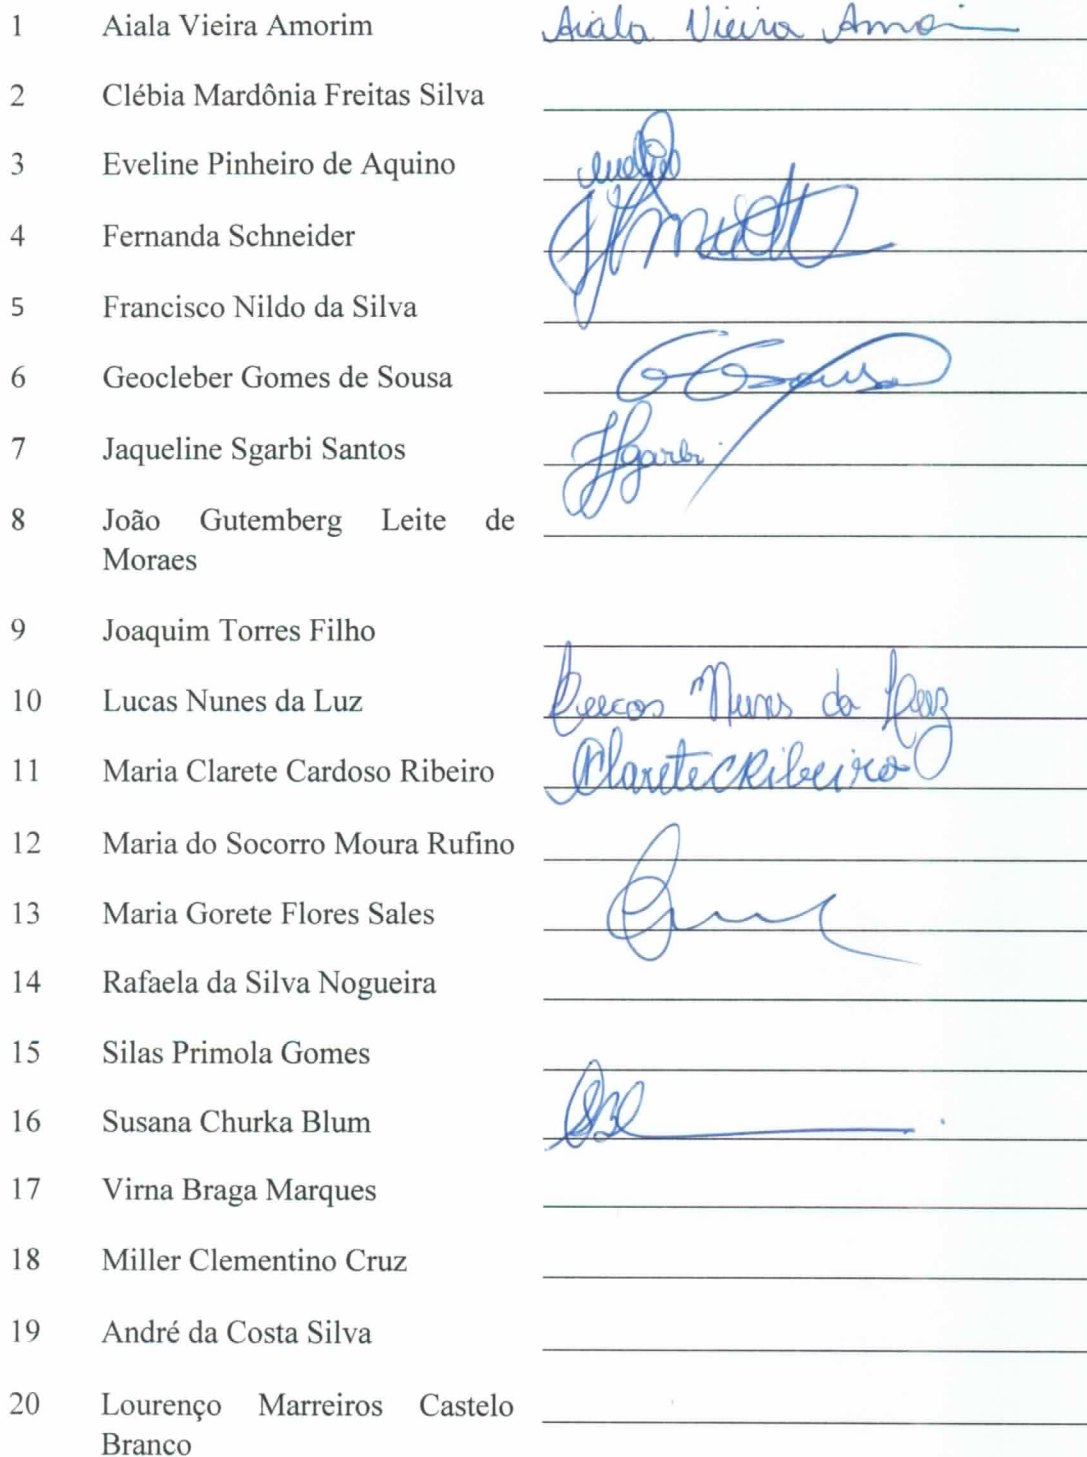 1 Aiala Vieira Amorim Aiala Vieira Amorim
2 Clébia Mardônia Freitas Silva
3 Eveline Pinheiro de Aquino
4 Fernanda Schneider
5 Francisco Nildo da Silva
6 Geocleber Gomes de Sousa GGSousa
7 Jaqueline Sgarbi Santos JSgarbi
8 João Gutemberg Leite de
Moraes
9 Joaquim Torres Filho
10 Lucas Nunes da Luz Lucas Nunes da Luz
11 Maria Clarete Cardoso Ribeiro MClareteCRibeiro
12 Maria do Socorro Moura Rufino
13 Maria Gorete Flores Sales
14 Rafaela da Silva Nogueira
15 Silas Primola Gomes
16 Susana Churka Blum
17 Virna Braga Marques
18 Miller Clementino Cruz
19 André da Costa Silva
20 Lourenço Marreiros Castelo
Branco